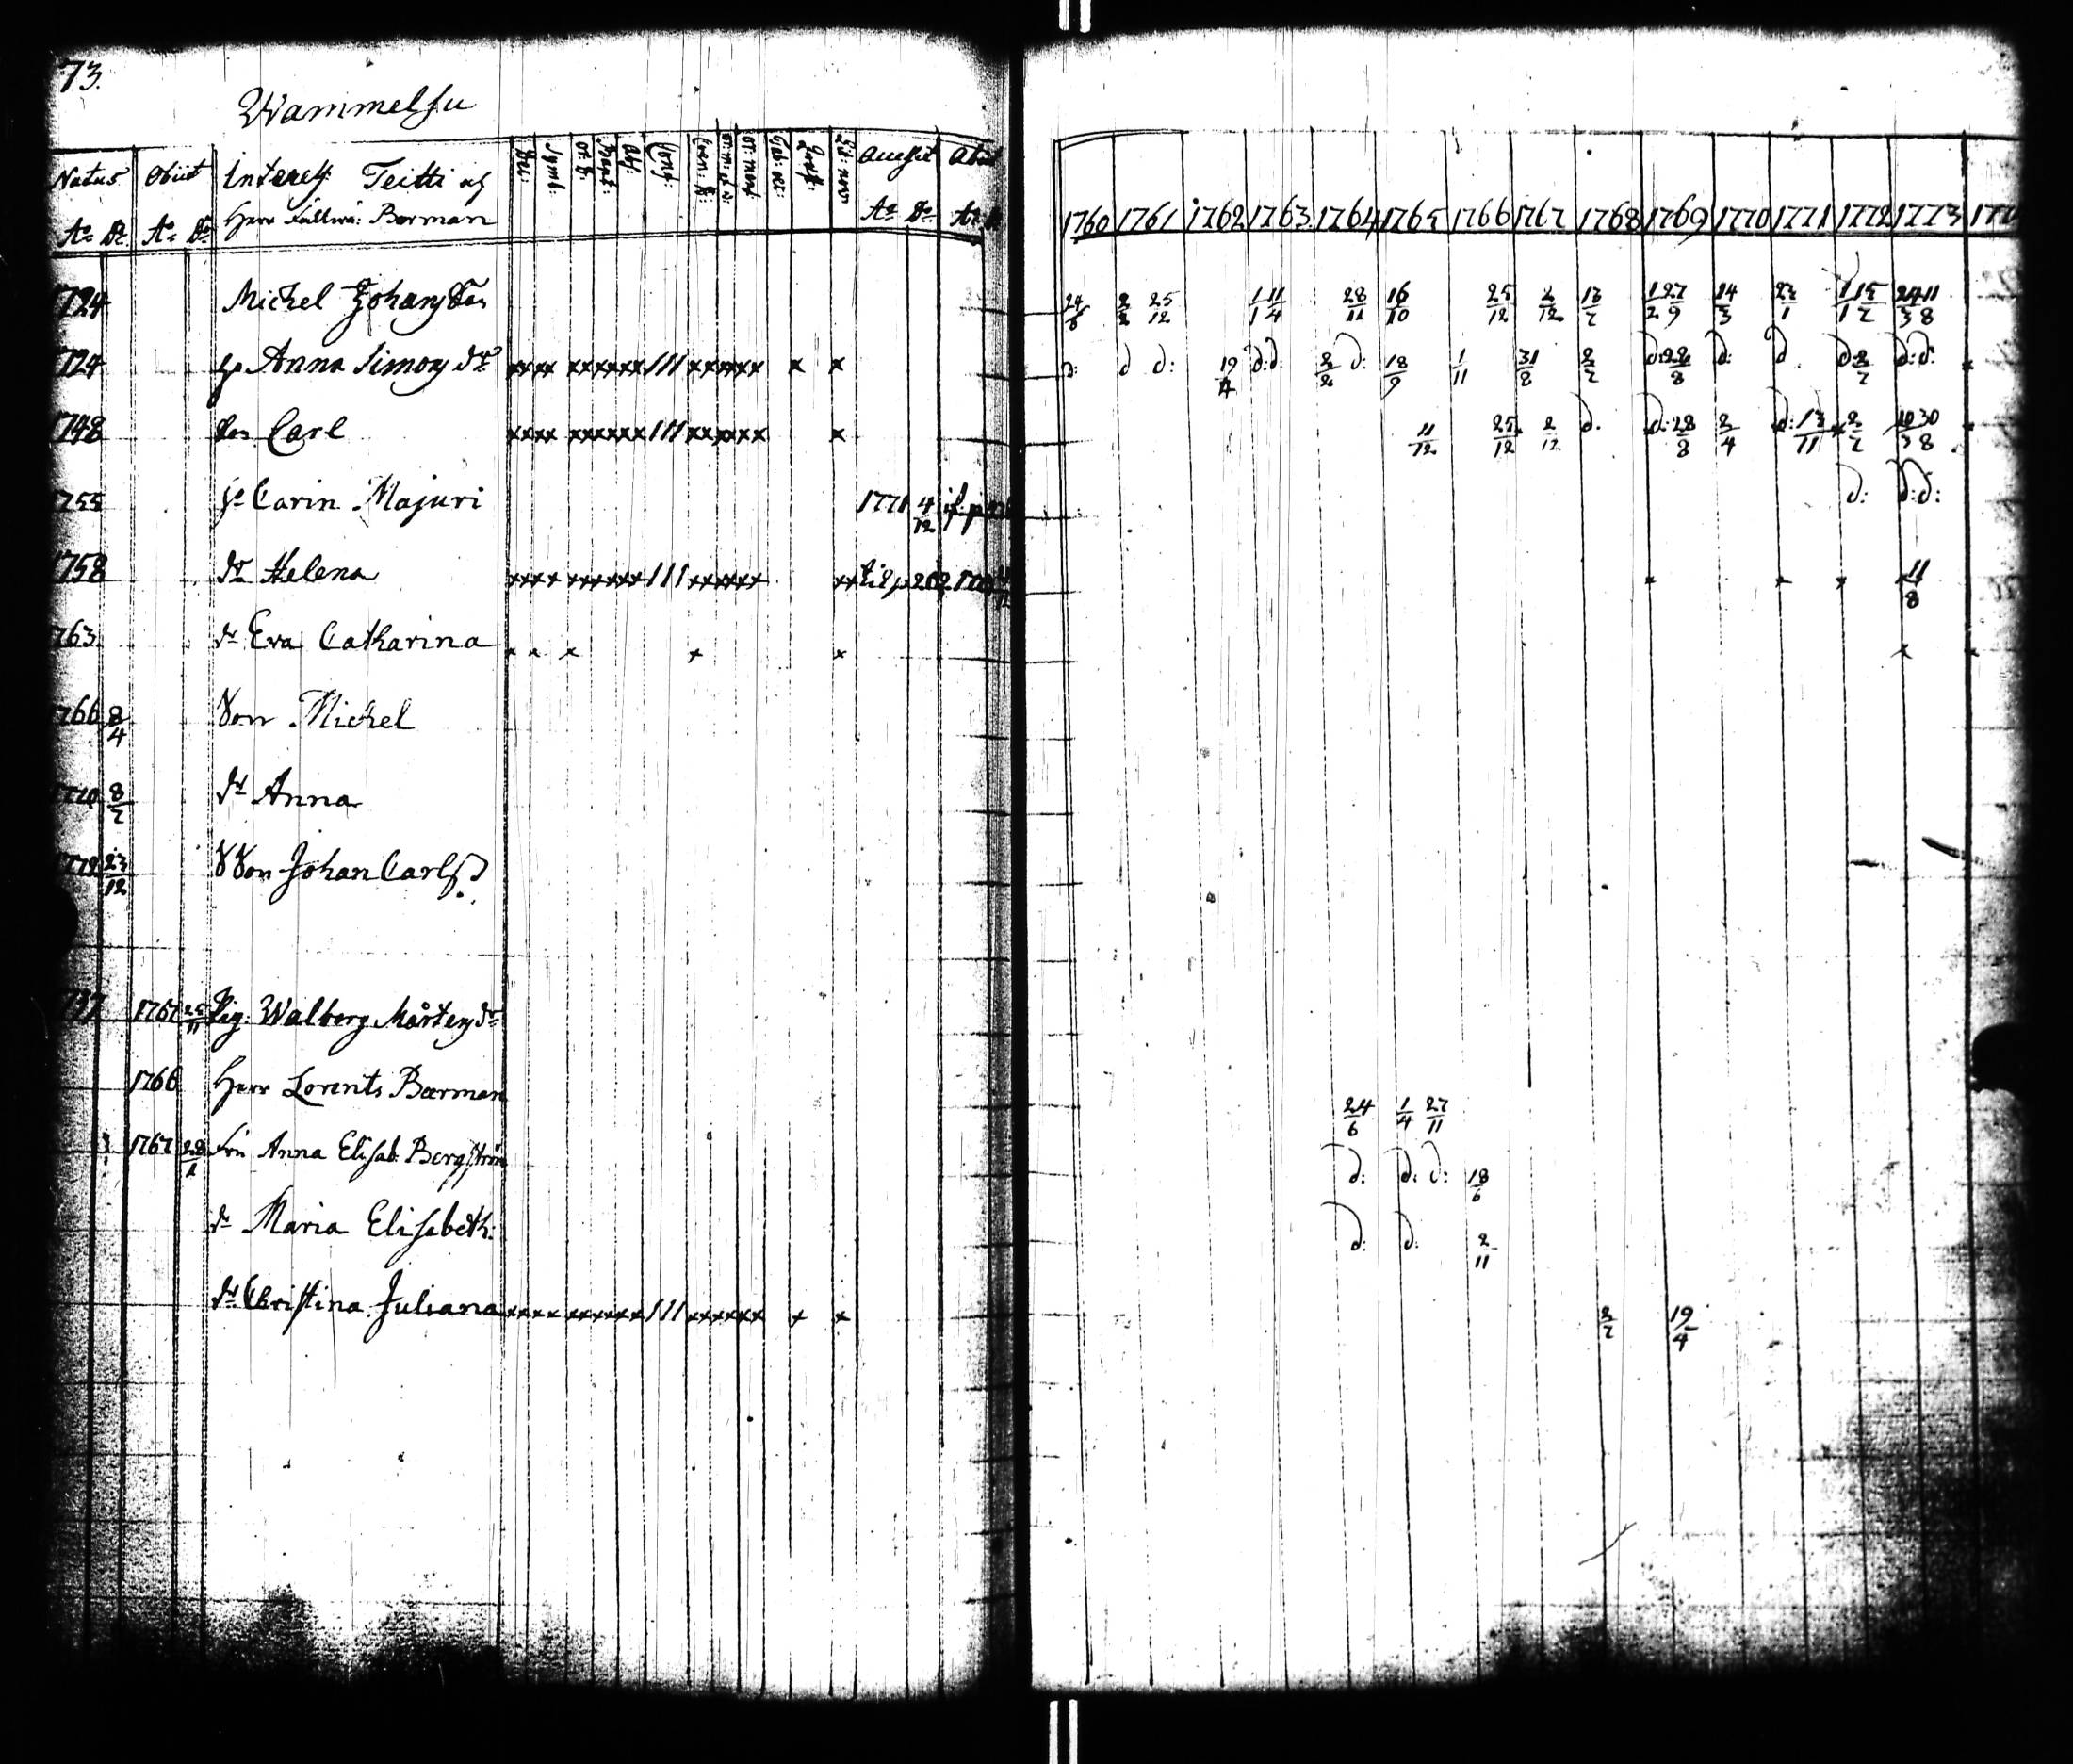 73.
Wammelsu
Natus Obiit Interess: Teitti och Dec: Symb: or: D: Bapt: Abs: Conf: Accessit Abiit
A:o D:o A:o D:o Herr Fältwä: Boerman A:o D:o A:o 1760 1761 1762 1763 1764 1765 1766 1767 1768 1769 1770 1771 1772 1773
1724 Michel Johans Son 2/2 25/12 1/1 11/4 28/11 16/10 25/12 2/12 13/7 1/2 27/9 14/3 23/1 1/1 15/7 24/3 11/8
1724 h. Anna Simons dr xxxx xxxxxx/// xxxxxx x x d: d d: 19/4 d: d: 2/2 d: 18/9 1/11 31/8 2/7 d: 28/8 d: d d: 2/7 d: d:
1748 Son Carl xxxx xxxxxx/// xxxxxx x 11/12 25/12 2/12 d. d: 28/8 2/4 d: 13/11 x 2/7 10/3 30/8
1755 h. Carin Majuri 1771 4/12 d: d: d:
1758 dr Helena xxxx xxxxxx/// xxxxxx xx til p 202 x x x 11/8
1763 dr Eva Catharina x x x x x x
1766 8/4 Son Michel
1770 8/7 dr Anna
1772 23/12 SSon Johan Carlss.
1737 1767 25/11 Pig: Walberg Mårtens dr
1766 Herr Lorents Boerman 24/6 1/4 27/11
1767 28/1 Fru Anna Elisab: Bergström d: d: d: 18/6
dr Maria Elisabeth: d: d: 2/11
dr Christina Juliana xxxx xxxxxx/// xxxxxx x x 2/7 19/4